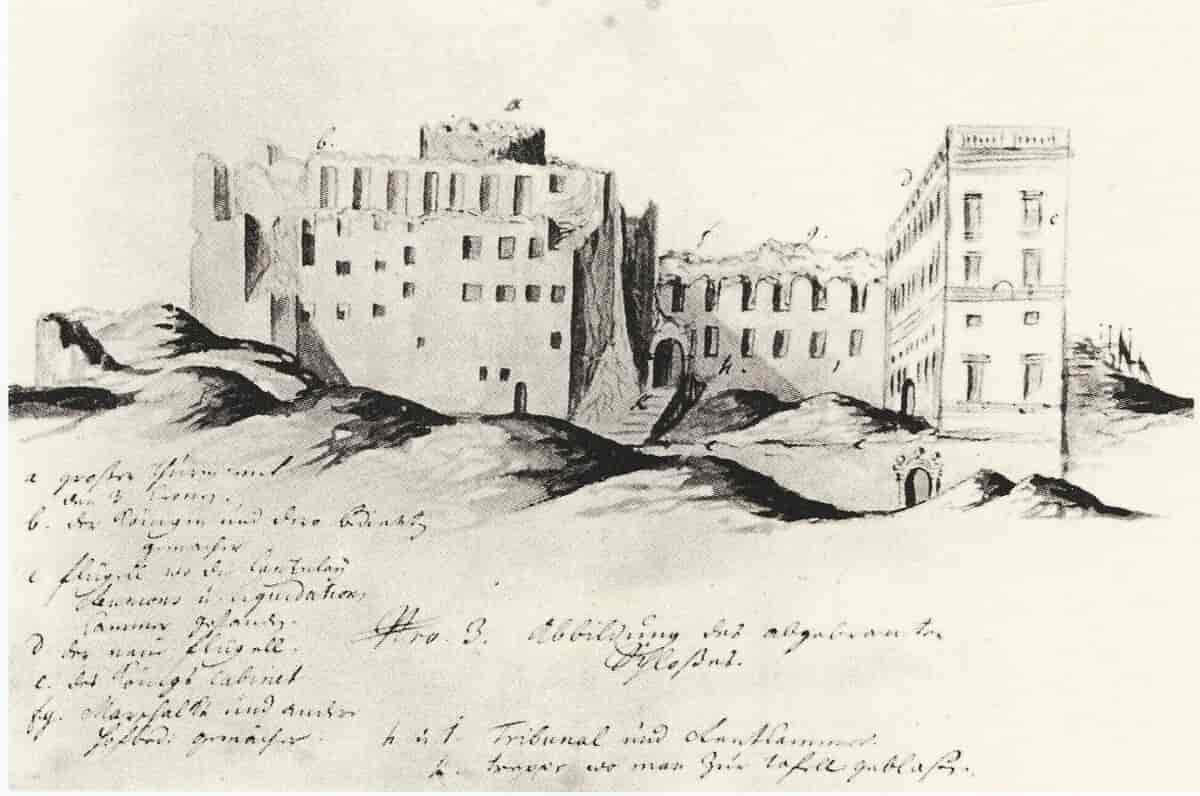 a
b.
d
e
f
g.
h.
i
k
a großer Thurm mit
den 3 Kronen.
b. der Königin und dero
gemächer
c flügell wo die Cantzley
und Liquidations
Cammer
d der neue flügell.
e. des Königs Cabinet
fg. Marschalls und andere
Hofbedi gemächer.
Nro. 3. Abbildung des abgebranten
Schloßes.
h u i. Tribunal und Rentkammer.
k. treppe wo man zur tafell geblasen.